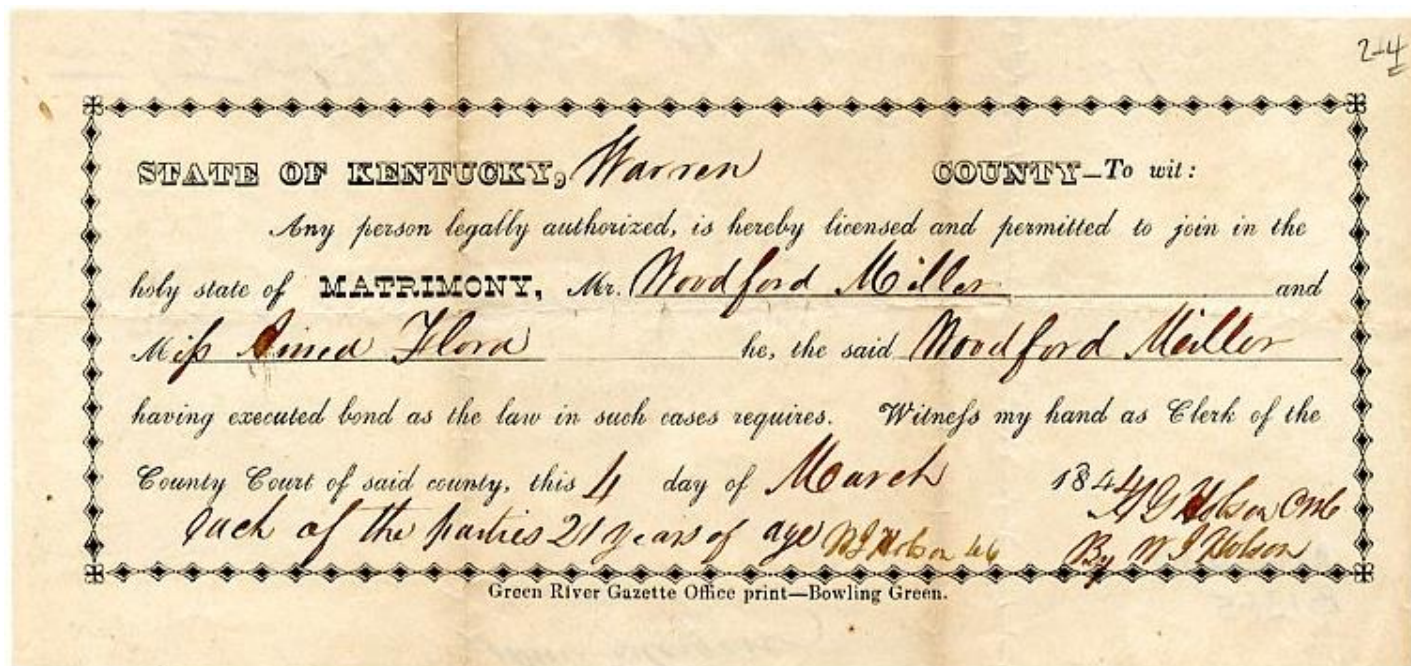 2-4
STATE OF KENTUCKY, Warren COUNTY—To wit:
Any person legally authorized, is hereby licensed and permitted to join in the
holy state of MATRIMONY, Mr. Woodford Miller and
Miſs Flora he, the said Woodford Miller
having executed bond as the law in such cases requires. Witneſs my hand as Clerk of the
County Court of said county, this 4 day of March 1844
Each of the parties 21 years of age W J Hobson
Hobson
By W J Hobson
Green River Gazette Office print—Bowling Green.